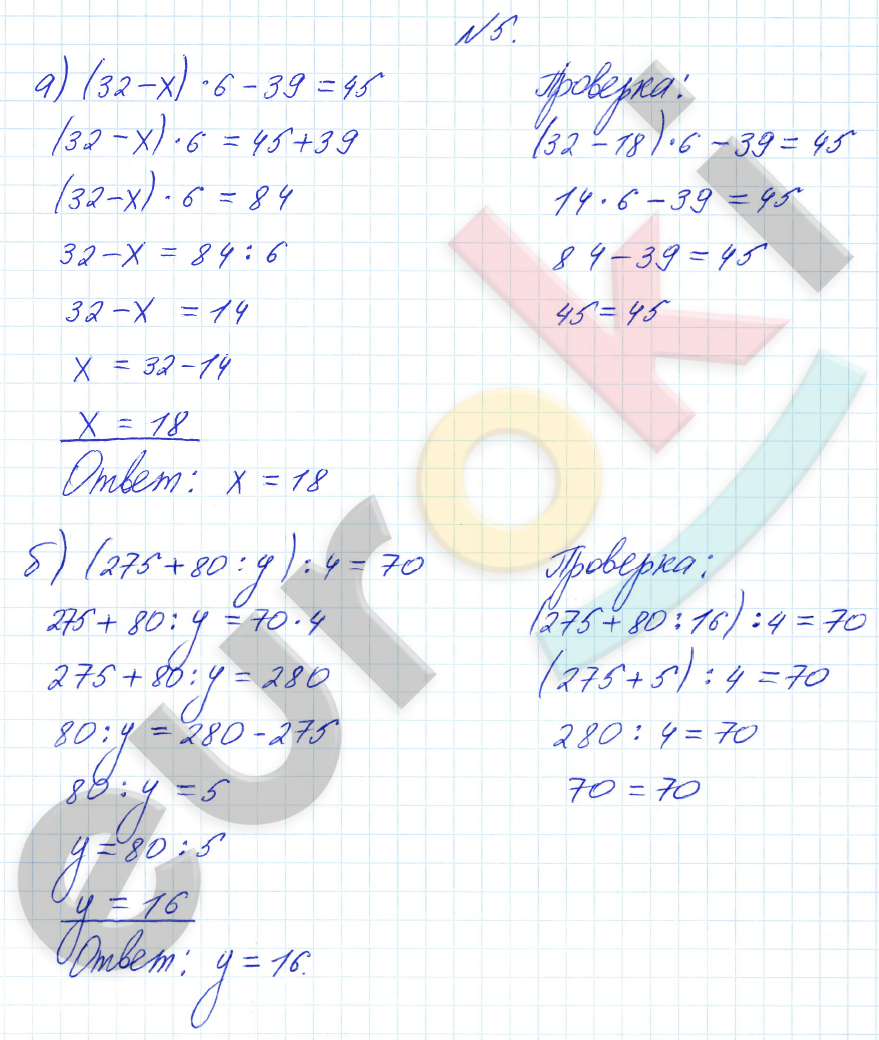 №5.
а) (32-x)·6-39=45
(32-x)·6=45+39
(32-x)·6=84
32-x=84:6
32-x=14
x=32-14
x=18
Ответ: x=18
Проверка:
(32-18)·6-39=45
14·6-39=45
84-39=45
45=45
б) (275+80:y):4=70
275+80:y=70·4
275+80:y=280
80:y=280-275
80:y=5
y=80:5
y=16
Ответ: y=16.
Проверка:
(275+80:16):4=70
(275+5):4=70
280:4=70
70=70
euroki